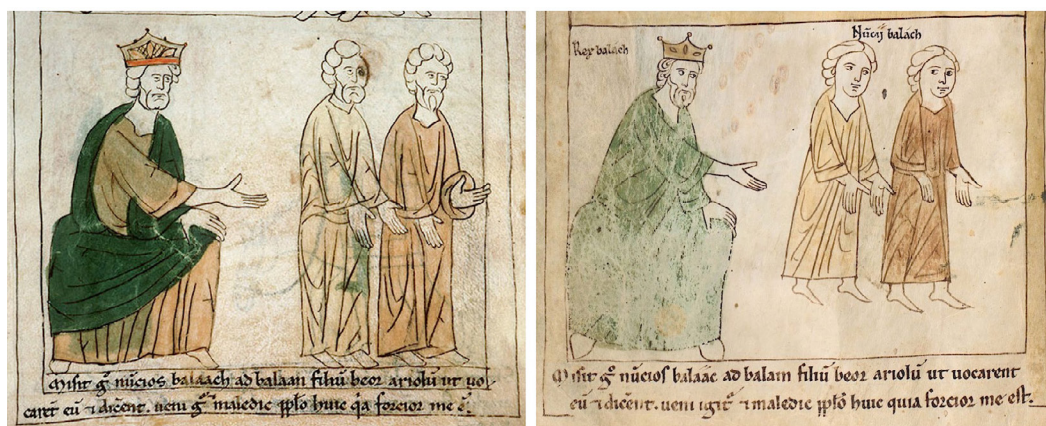 misit gͦ nūcios balaach ad balaan filiū beor ariolū ut uo-
caret eū ⁊ dicēnt. ueni gͦ maledic pplō huic qͥa forcior me ē.
Rex balach
Nūcij balach
Misit gͦ nūcios balaac ad balam filiū beor ariolū ut uocarent
eū ⁊ dicēnt. ueni igit᷑ ⁊ maledic pplō huic quia forcior me est.